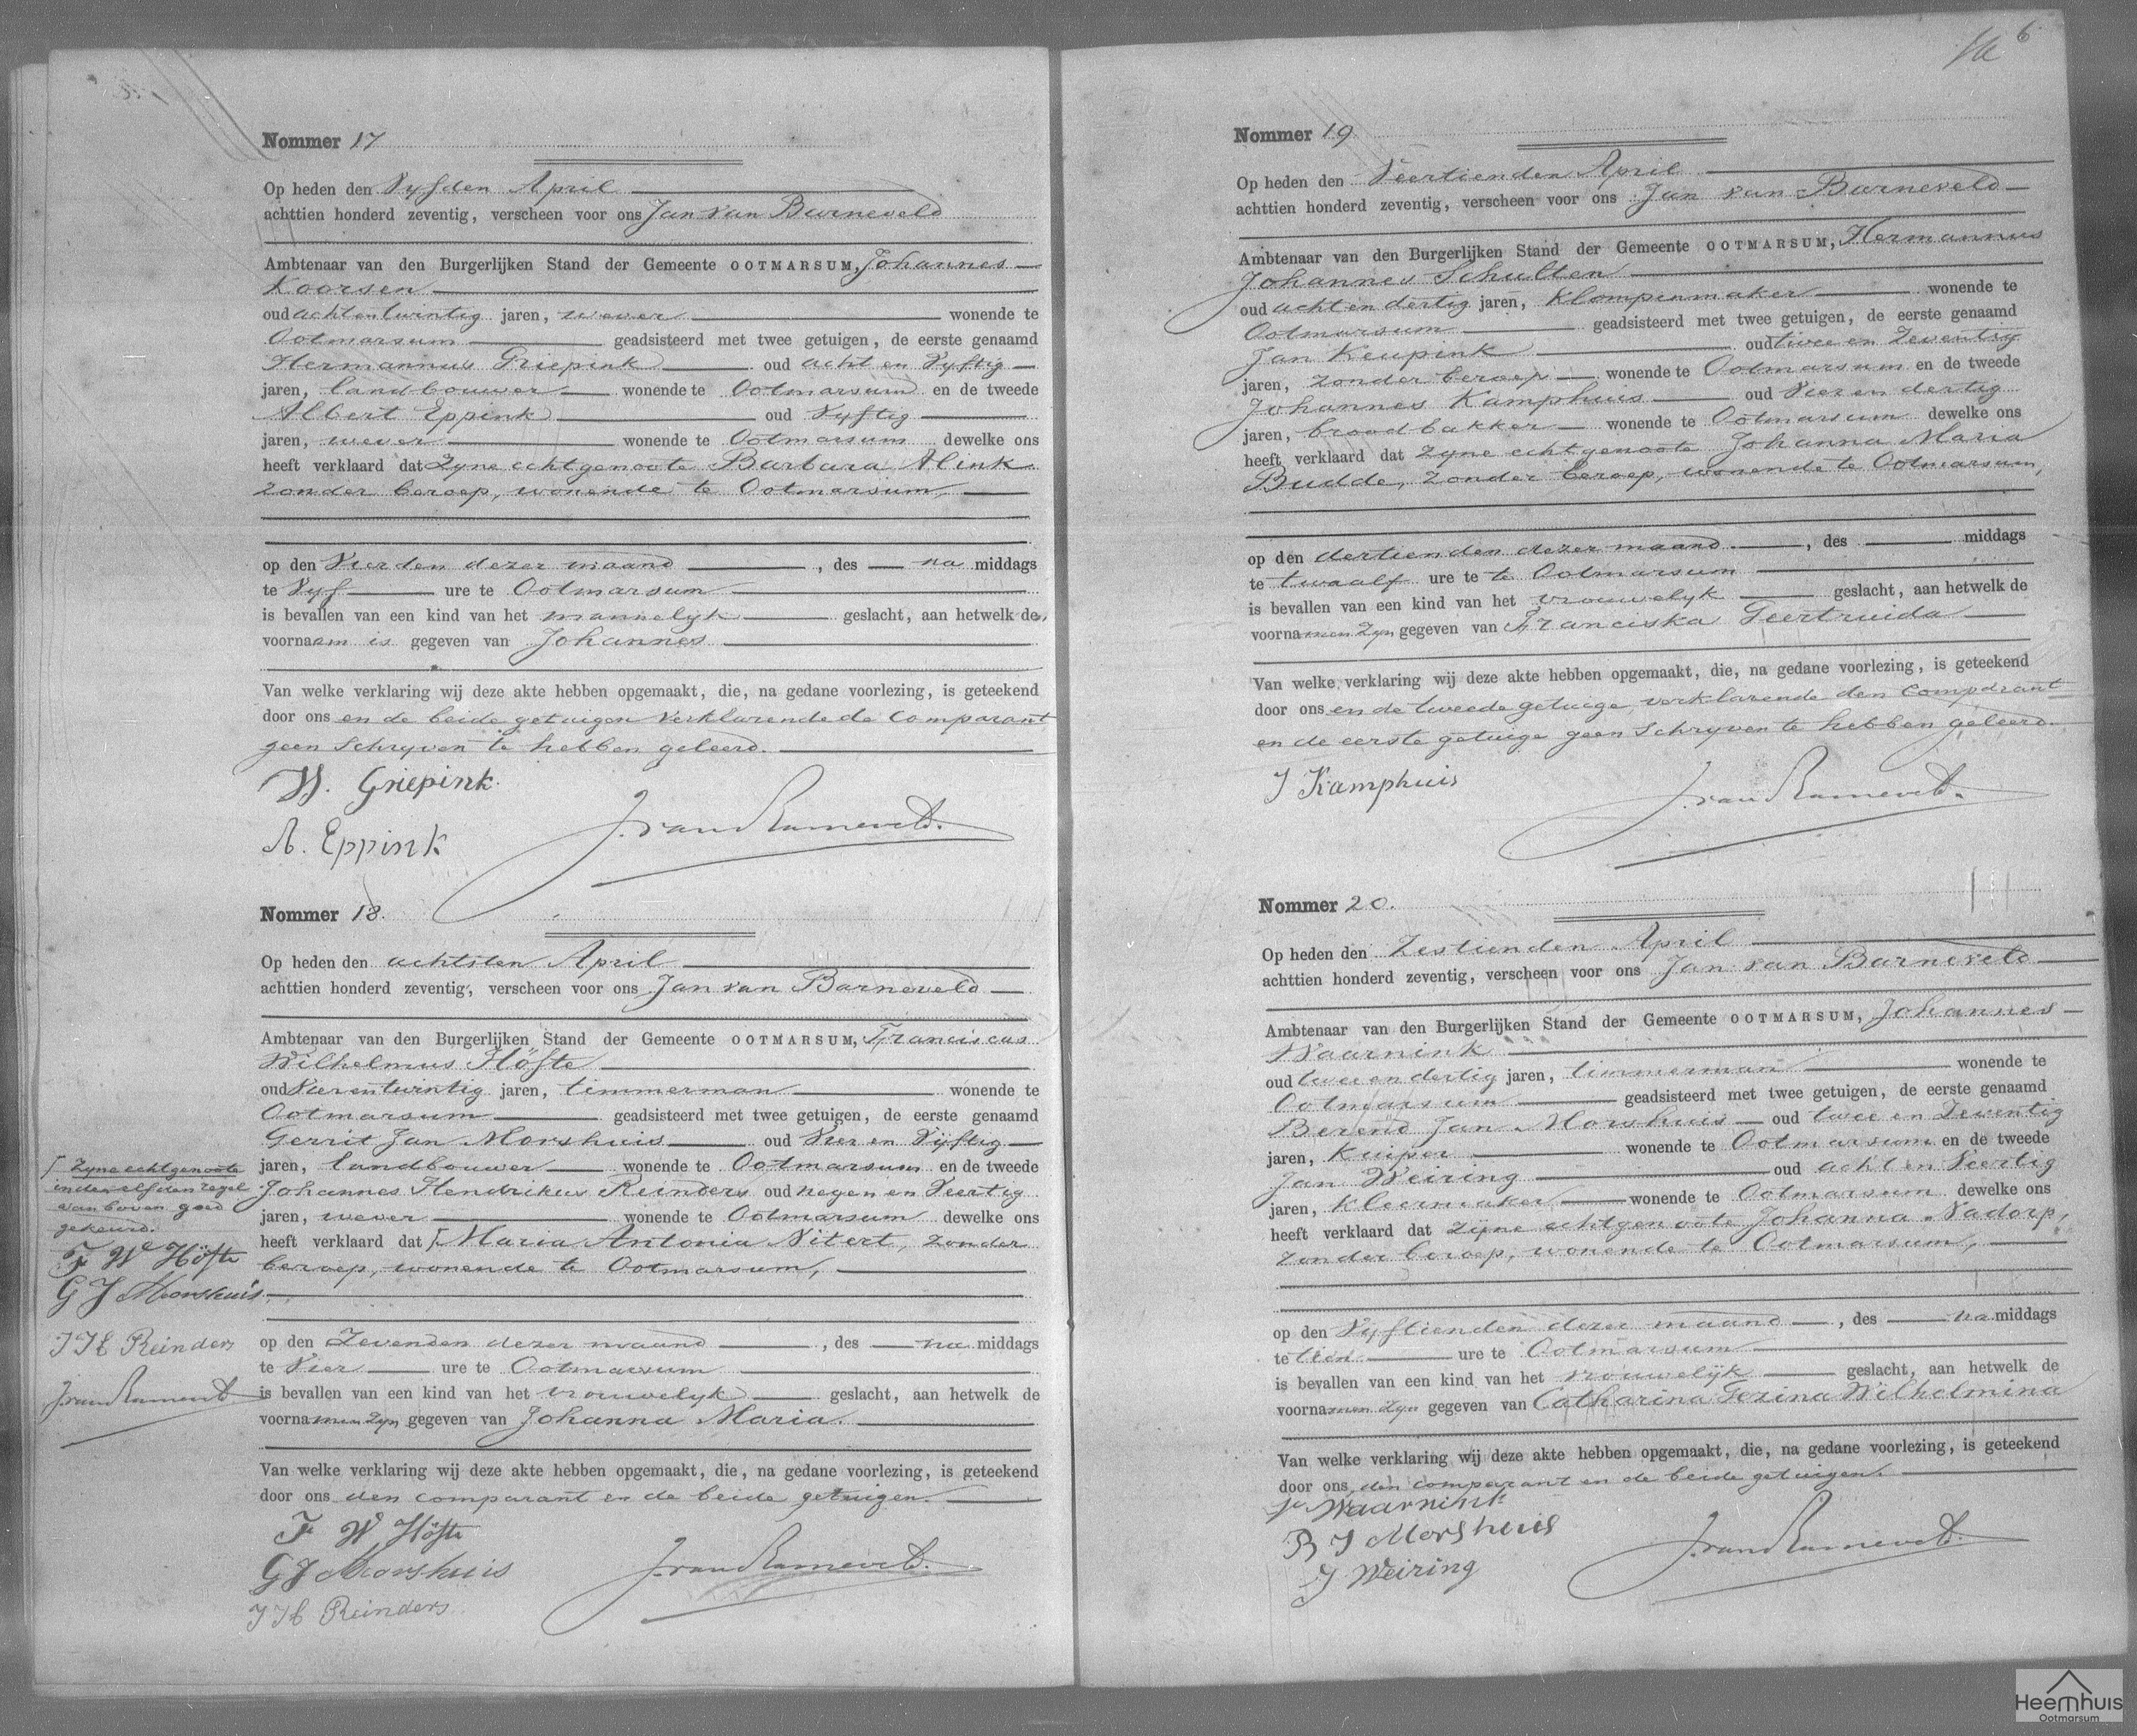 Nommer 17
Op heden den Vyfden April
achttien honderd zeventig, verscheen voor ons Jan van Barneveld
Ambtenaar van den Burgerlijken Stand der Gemeente OOTMARSUM, Johannes
Koorsen
oud achtentwintig jaren, wever wonende te
Ootmarsum geadsisteerd met twee getuigen, de eerste genaamd
Hermannus Griepink oud acht en Vyftig
jaren, landbouwer wonende te Ootmarsum en de tweede
Albert Eppink oud Vyftig
jaren, wever wonende te Ootmarsum dewelke ons
heeft verklaard dat Zyne echtgenoote Barbara Alink
zonder beroep, wonende te Ootmarsum,
op den Vierden dezer maand, des na middags
te Vyf ure te Ootmarsum
is bevallen van een kind van het mannelyk geslacht, aan hetwelk de
voornaam is gegeven van Johannes
Van welke verklaring wij deze akte hebben opgemaakt, die, na gedane voorlezing, is geteekend
door ons en de beide getuigen verklarende de Comparant
geen Schryven te hebben geleerd.
H. Griepink.
A. Eppink
J. van Barneveld.
Nommer 18.
Op heden den achtsten April
achttien honderd zeventig, verscheen voor ons Jan van Barneveld
Ambtenaar van den Burgerlijken Stand der Gemeente OOTMARSUM, Franciscus
Wilhelmus Höfte
oud Vierentwintig jaren, timmerman wonende te
Ootmarsum geadsisteerd met twee getuigen, de eerste genaamd
Gerrit Jan Morshuis oud Vier en Vyftig
jaren, landbouwer wonende te Ootmarsum en de tweede
Johannes Hendrikus Reinders oud negen en Veertig
jaren, wever wonende te Ootmarsum dewelke ons
heeft verklaard dat Maria Antonia Nitert, zonder
beroep, wonende te Ootmarsum,
op den Zevenden dezer maand, des na middags
te Vier ure te Ootmarsum
is bevallen van een kind van het vrouwelyk geslacht, aan hetwelk de
voornamen zyn gegeven van Johanna Maria.
Van welke verklaring wij deze akte hebben opgemaakt, die, na gedane voorlezing, is geteekend
door ons den comparant en de beide getuigen.
F W Höfte
G J Morshuis
J H Reinders
J. van Barneveld.
Zyne echtgenoote
in den elfden regel
van boven goed
gekeurd.
F W Höfte
G J Morshuis
J H Reinders
J. van Barneveld
6
Nommer 19
Op heden den Veertienden April
achttien honderd zeventig, verscheen voor ons Jan van Barneveld
Ambtenaar van den Burgerlijken Stand der Gemeente OOTMARSUM, Hermannus
Johannes Schulten
oud acht en dertig jaren, Klompenmaker wonende te
Ootmarsum geadsisteerd met twee getuigen, de eerste genaamd
Jan Keupink oud twee en Zeventig
jaren, zonder beroep wonende te Ootmarsum en de tweede
Johannes Kamphuis oud Vier en dertig
jaren, broodbakker wonende te Ootmarsum dewelke ons
heeft verklaard dat Zyne echtgenoote Johanna Maria
Budde, zonder beroep, wonende te Ootmarsum,
op den dertienden dezer maand, des middags
te twaalf ure te te Ootmarsum
is bevallen van een kind van het vrouwelyk geslacht, aan hetwelk de
voornamen zyn gegeven van Franciska Geertruida
Van welke verklaring wij deze akte hebben opgemaakt, die, na gedane voorlezing, is geteekend
door ons en de tweede getuige, verklarende den Comparant
en de eerste getuige geen Schryven te hebben geleerd.
J Kamphuis
J. van Barneveld.
Nommer 20.
Op heden den Zestienden April
achttien honderd zeventig, verscheen voor ons Jan van Barneveld
Ambtenaar van den Burgerlijken Stand der Gemeente OOTMARSUM, Johannes
Waarnink
oud twee en dertig jaren, timmerman wonende te
Ootmarsum geadsisteerd met twee getuigen, de eerste genaamd
Berend Jan Morshuis oud twee en Zeventig
jaren, Kuiper wonende te Ootmarsum en de tweede
Jan Weiring oud acht en Veertig
jaren, Kleermaker wonende te Ootmarsum dewelke ons
heeft verklaard dat zijne echtgenoote Johanna Nadorp,
zonder beroep, wonende te Ootmarsum,
op den Vyftienden dezer maand, des na middags
te tien ure te Ootmarsum
is bevallen van een kind van het vrouwelijk geslacht, aan hetwelk de
voornamen zyn gegeven van Catharina Gezina Wilhelmina
Van welke verklaring wij deze akte hebben opgemaakt, die, na gedane voorlezing, is geteekend
door ons, den comparant en de beide getuigen.
Waarnink
B J Morshuis
J Weiring
J. van Barneveld.
Heemhuis
Ootmarsum